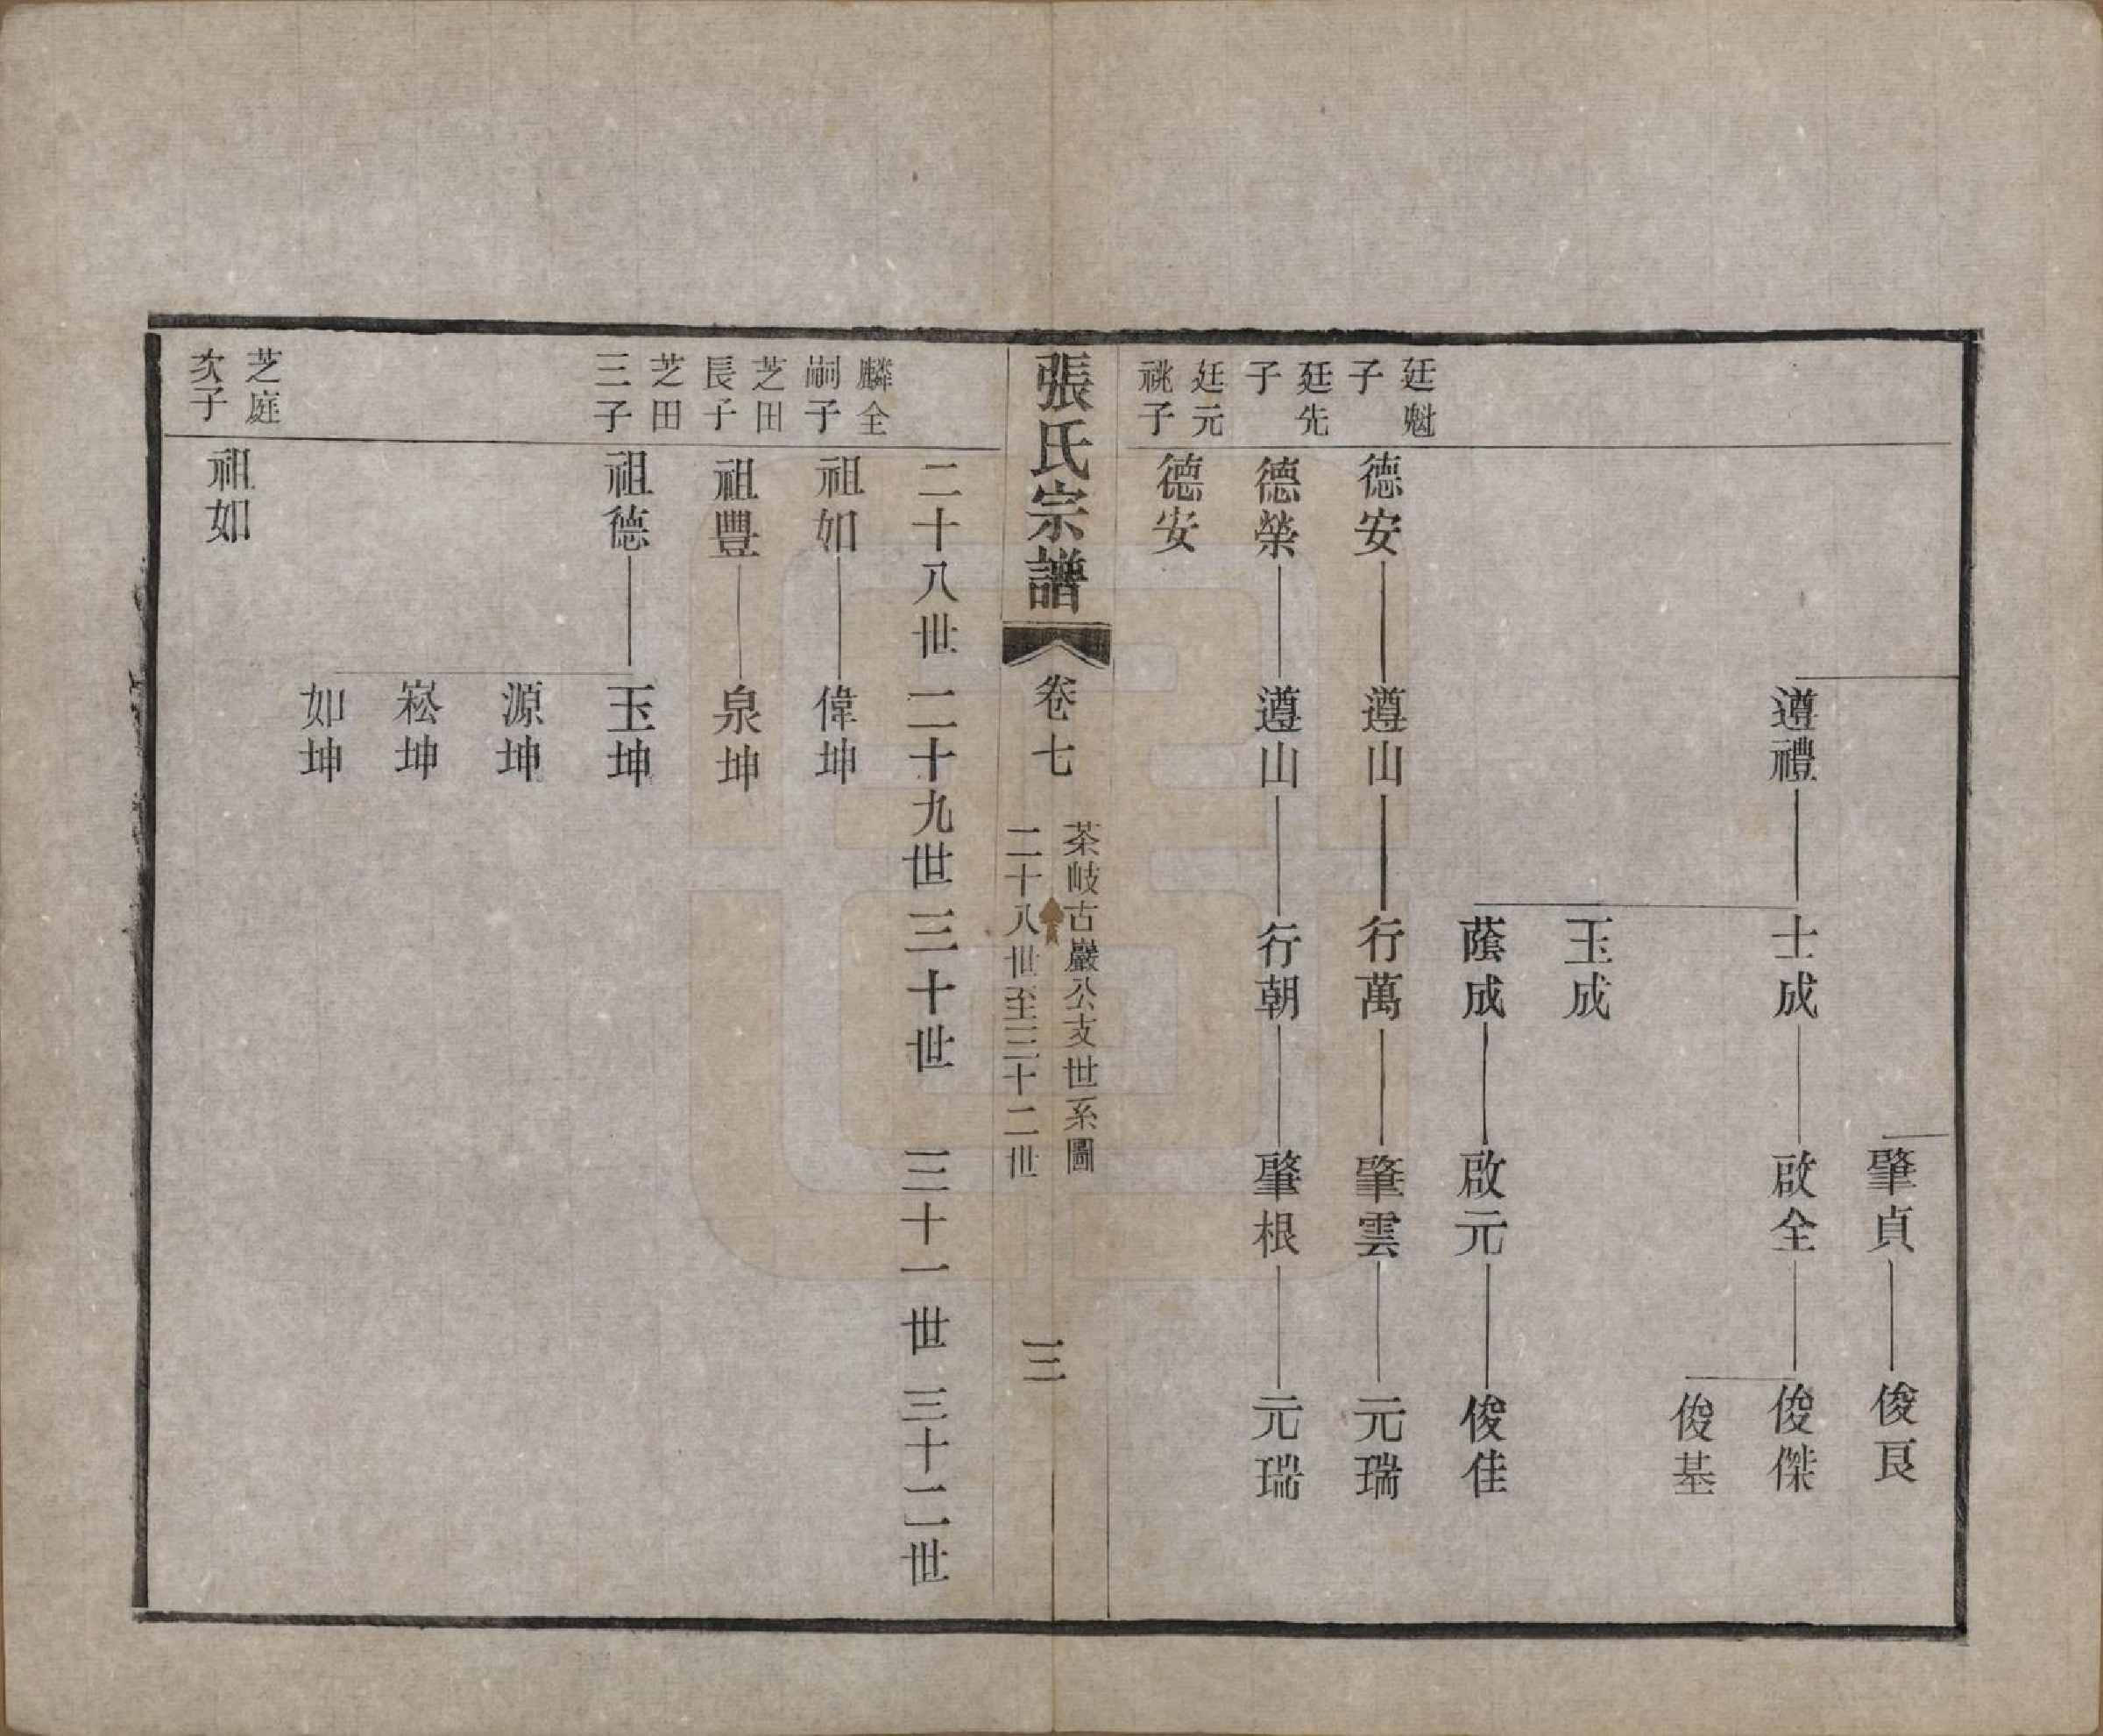 肇貞 俊良
遵禮 士成 啟全 俊傑
俊基
玉成
蔭成 啟元 俊佳
廷魁子 德安 遵山 行萬 肇雲 元瑞
廷先子 德榮 遵山 行朝 肇根 元瑞
廷元祧子 德安
張氏宗譜 卷七 茶岐古巖公支世系圖 二十八世至三十二世 三
二十八世 二十九世 三十世 三十一世 三十二世
麟全嗣子 祖如 偉坤
芝田長子 祖豐 泉坤
芝田三子 祖德 玉坤
源坤
崧坤
如坤
芝庭次子 祖如